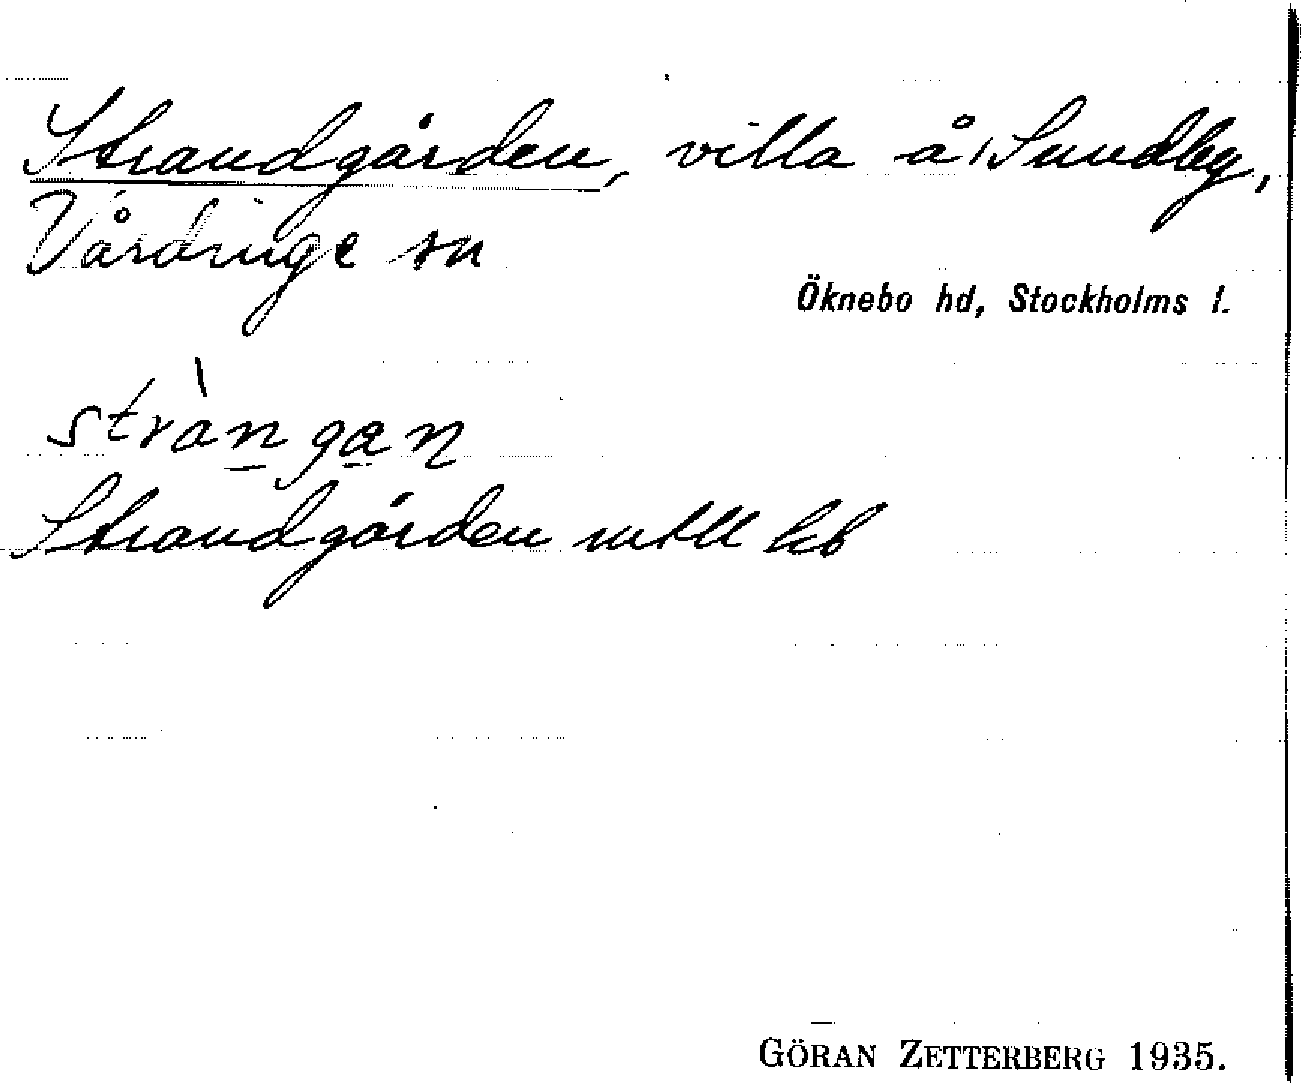 Strandgården, villa å Sundby,
Vårdinge sn
Öknebo hd, Stockholms l.
stràngan
Strandgården mtll kb
GÖRAN ZETTERBERG 1935.